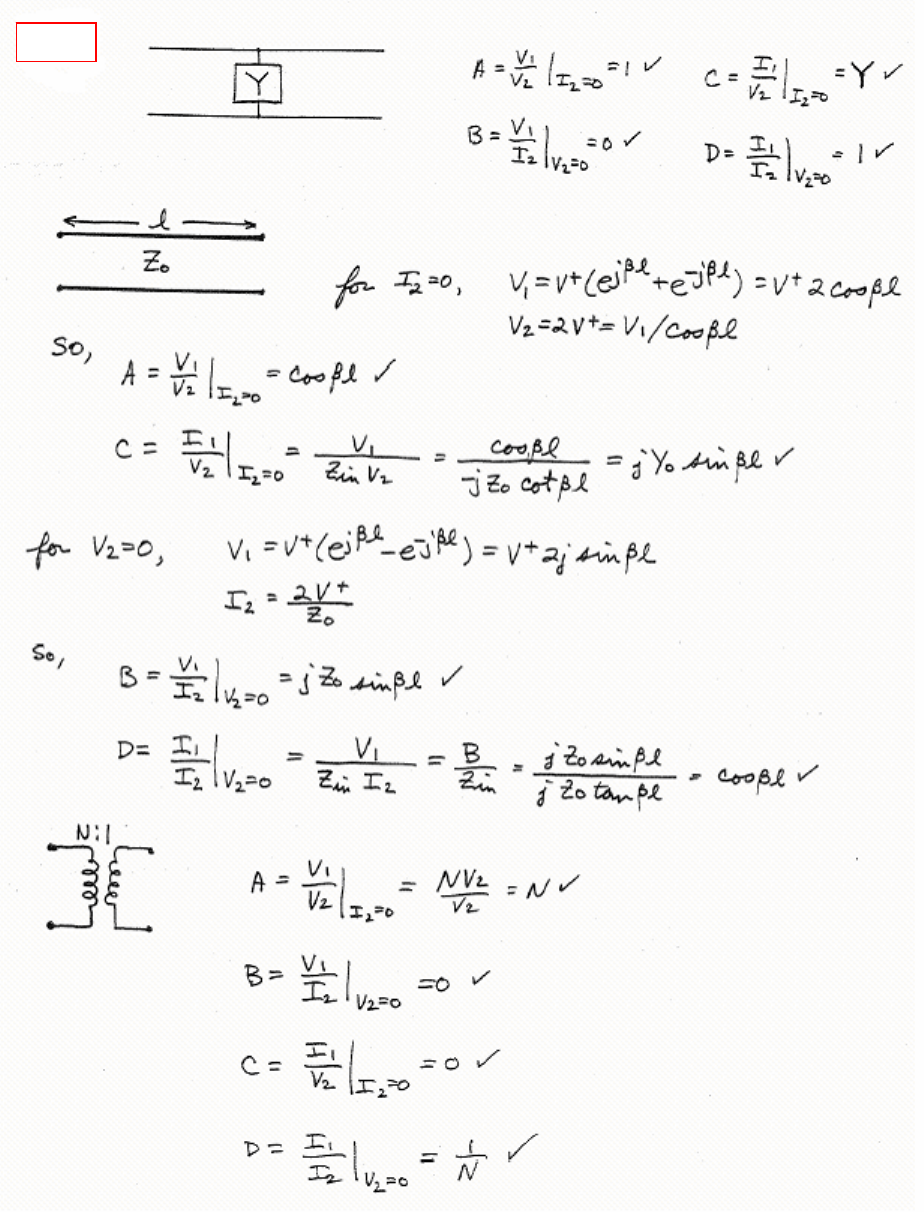 Y
A = V₁/V₂ |_{I₂=0} = 1 ✓ C = I₁/V₂ |_{I₂=0} = Y ✓
B = V₁/I₂ |_{V₂=0} = 0 ✓ D = I₁/I₂ |_{V₂=0} = 1 ✓
l
Z₀
for I₂=0, V₁ = V⁺(e^{jβl} + e^{-jβl}) = V⁺ 2 cos βl
V₂ = 2V⁺ = V₁/cos βl
So,
A = V₁/V₂ |_{I₂=0} = cos βl ✓
C = I₁/V₂ |_{I₂=0} = V₁/(Zin V₂) = cos βl/(-j Z₀ cot βl) = j Y₀ sin βl ✓
for V₂=0, V₁ = V⁺(e^{jβl} - e^{-jβl}) = V⁺ 2j sin βl
I₂ = 2V⁺/Z₀
So,
B = V₁/I₂ |_{V₂=0} = j Z₀ sin βl ✓
D = I₁/I₂ |_{V₂=0} = V₁/(Zin I₂) = B/Zin = j Z₀ sin βl/(j Z₀ tan βl) = cos βl ✓
N:1
A = V₁/V₂ |_{I₂=0} = NV₂/V₂ = N ✓
B = V₁/I₂ |_{V₂=0} = 0 ✓
C = I₁/V₂ |_{I₂=0} = 0 ✓
D = I₁/I₂ |_{V₂=0} = 1/N ✓